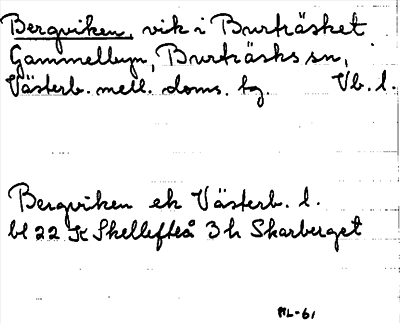 Bergviken, vik i Burträsket
Gammelbyn, Burträsks sn,
Västerb. mell. doms. tg. Vb. l.
Bergviken ek Västerb. l.
bl 22 K Skellefteå 3h Skarberget
ML-61